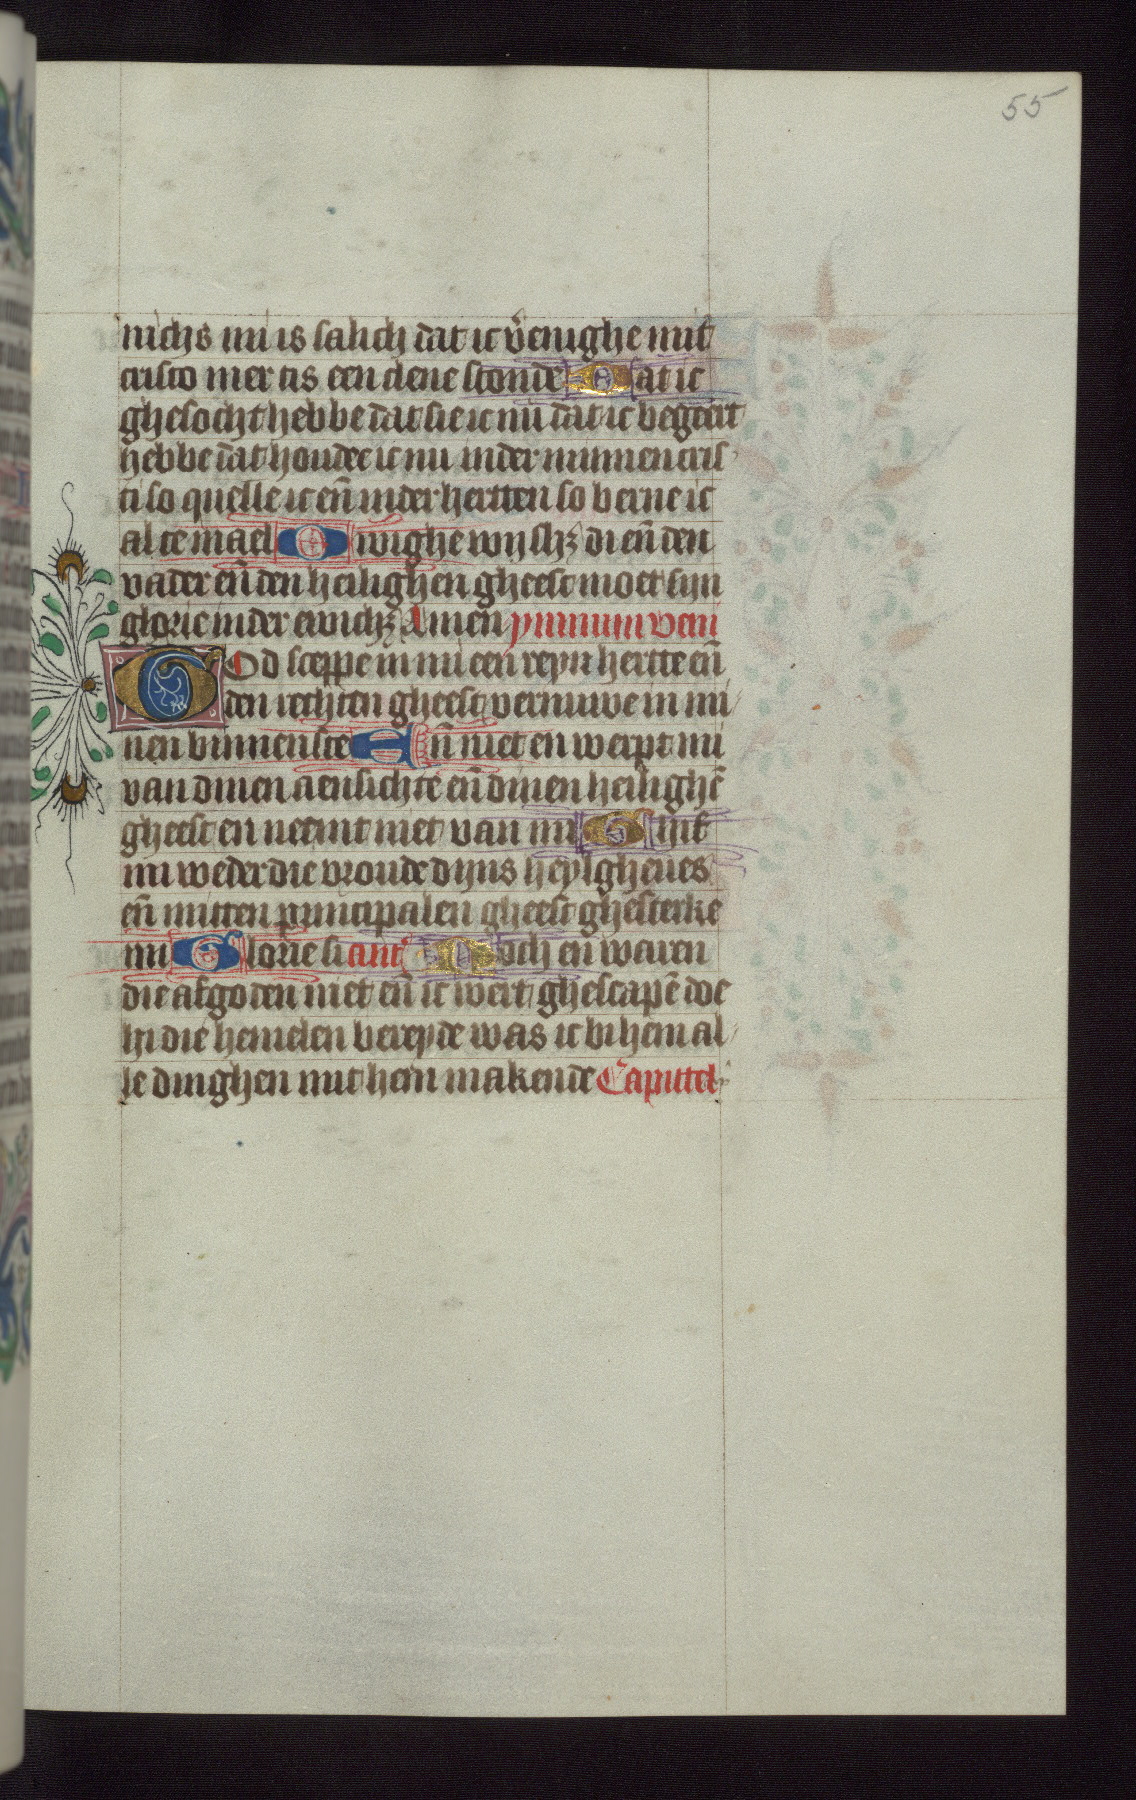 55
nichs mi is salich dat ic v̄enighe mit
cristo mer tis een clene stonde Dat ic
ghesocht hebbe dat sie ic nu dat ic begeert
hebbe dat houdee ic nu inder minnen cris
ti so quelle ic eñ inder hertten so berne ic
al te mael Ewighe wijshꝫ di eñ den
vader eñ den heilighen gheest moet sijn
glorie inder ewichꝫ Amen ymnum veni
God sceppe in mi een reyn hertte eñ
den rechten gheest vernuwe in mi
nen binnenste Eñ niet en werpt mi
van dinen aensichte eñ dinen heilighē
gheest en neemt niet van mi Ghif
mi weder die vroude dijns heylgheues
eñ mitten principalen gheest ghesterke
mi Glorie si ant Noch en waren
die afgoden niet eñ ic wert ghescapē doe
hi die hemelen bereyde was ic bi hem al
le dinghen mit hem makende Capittel